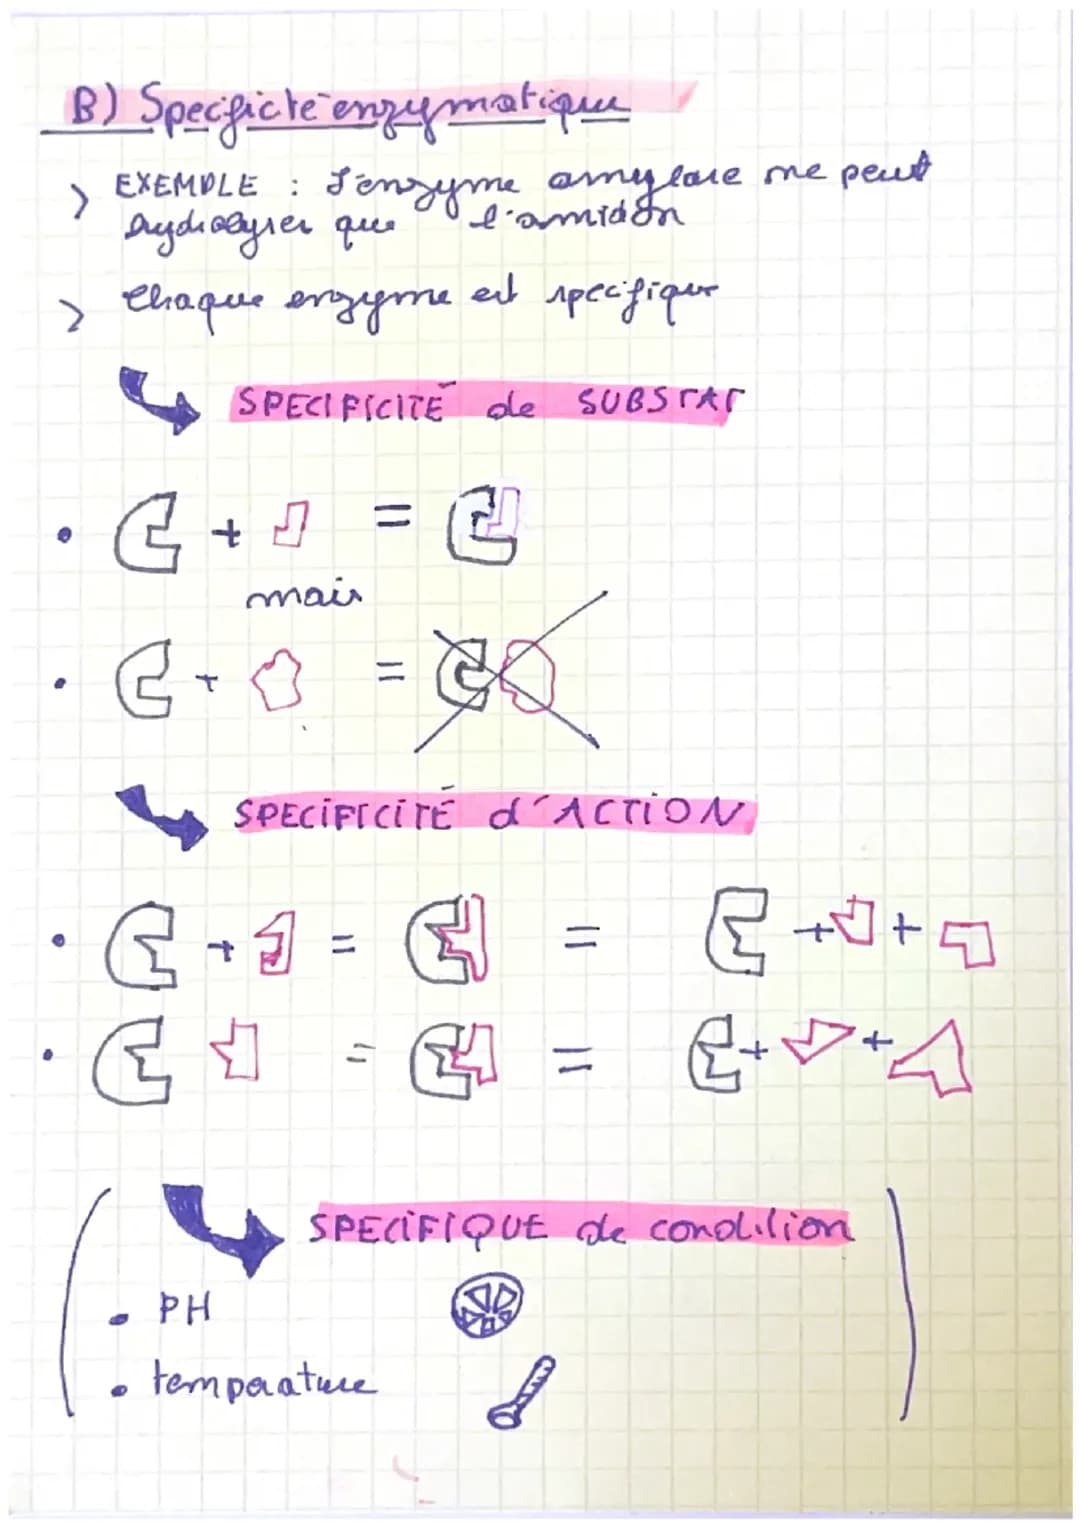 B) Specificté enzymatique
> EXEMPLE : L'enzyme amylase ne peut
hydrolyser que l'amidon
> Chaque enzyme est specifique
SPECIFICITÉ de SUBSTAT
• + =
mais
• + =
SPECIFICITÉ d'ACTION
• + = = + +
• = = + +
( SPECIFIQUE de condition )
• PH
• temperature